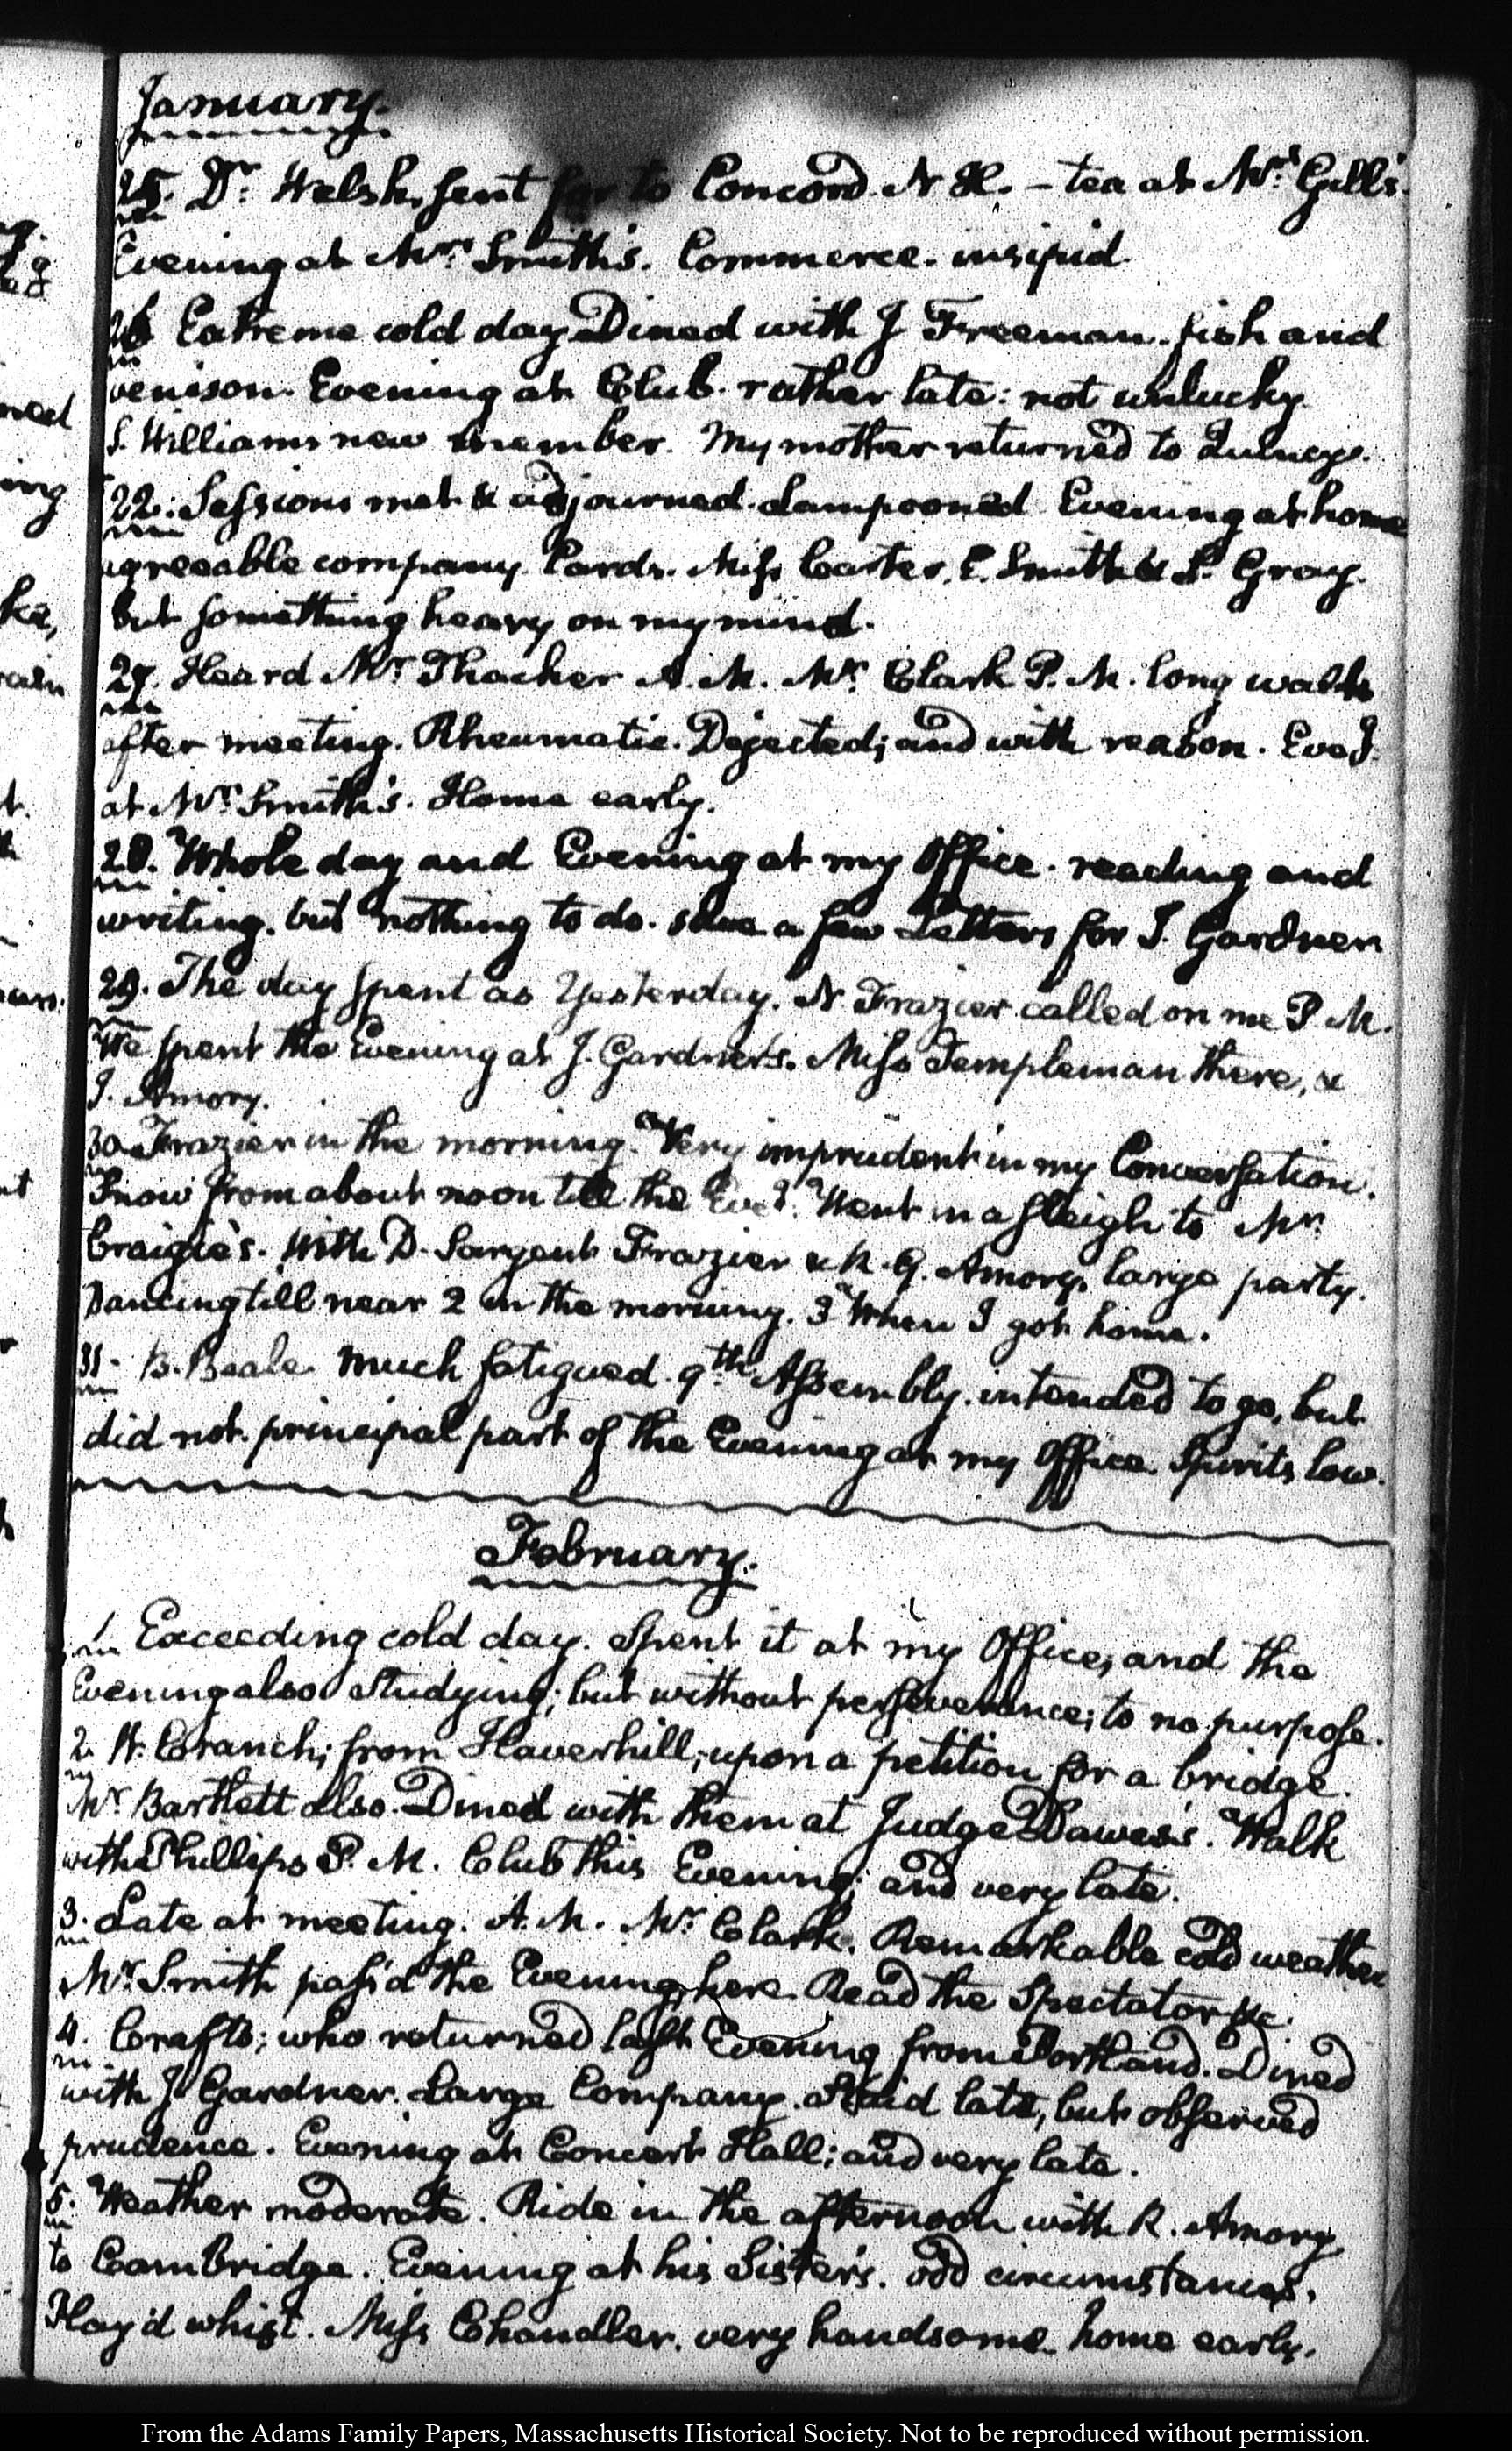 January.
25. Dr. Welsh, sent for to Concord. N H. – tea at Mrs. Gill's.
Evening at Mrs. Smith's. Commerce. insipid.
26 Extreme cold day Dined with J Freeman. fish and
venison. Evening at Club. rather late: not unlucky.
S. Williams new member. My mother returned to Quincy.
22. Sessions met & adjourned. Lampooned Evening at home
agreeable company. Cards. Miss Carter, E. Smith & S. Gray.
but something heavy on my mind.
27. Heard Mr. Thacher A. M. Mr. Clark P. M. long walk
after meeting. Rheumatic. Dejected; and with reason. Eveg.
at Mrs Smith's. Home early.
28. Whole day and Evening at my Office. reading and
writing. but nothing to do. save a few Letters for J. Gardner
29. The day spent as Yesterday. N Frazier called on me P. M.
We spent the Evening at J. Gardner's. Miss Templeman there, &
J. Amory.
30 Frazier in the morning. Very imprudent in my Conversation.
Snow from about noon till the Eveg. Went in a sleigh to Mr.
Craigie's. With D. Sargent Frazier & R. G. Amory, large party.
Dancing till near 2 in the morning. 3 When I got home.
31. B. Beale. much fatigued. 9th. Assembly. intended to go, but
did not. principal part of the Evening at my Office. Spirits low.
February.
1. Exceeding cold day. Spent it at my Office, and the
Evening also Studying; but without perseverance; to no purpose.
2. W. Cranch; from Haverhill; upon a petition for a bridge.
Mr. Bartlett also. Dined with them at Judge Dawes's. Walk
with Phillips P. M. Club this Evening; and very late.
3. Late at meeting. A. M. Mr Clark. Remarkable cold weather
Mr. Smith pass'd the Evening here. Read the Spectator &c.
4. Crafts; who returned last Evening from Portland. Dined
with J. Gardner. Large Company. Staid late, but observed
prudence. Evening at Concert Hall; and very late.
5. Weather moderate. Ride in the afternoon with R. Amory,
to Cambridge. Evening at his Sister's. odd circumstances.
Play'd whist. Miss Chandler. very handsome. home early.
From the Adams Family Papers, Massachusetts Historical Society. Not to be reproduced without permission.